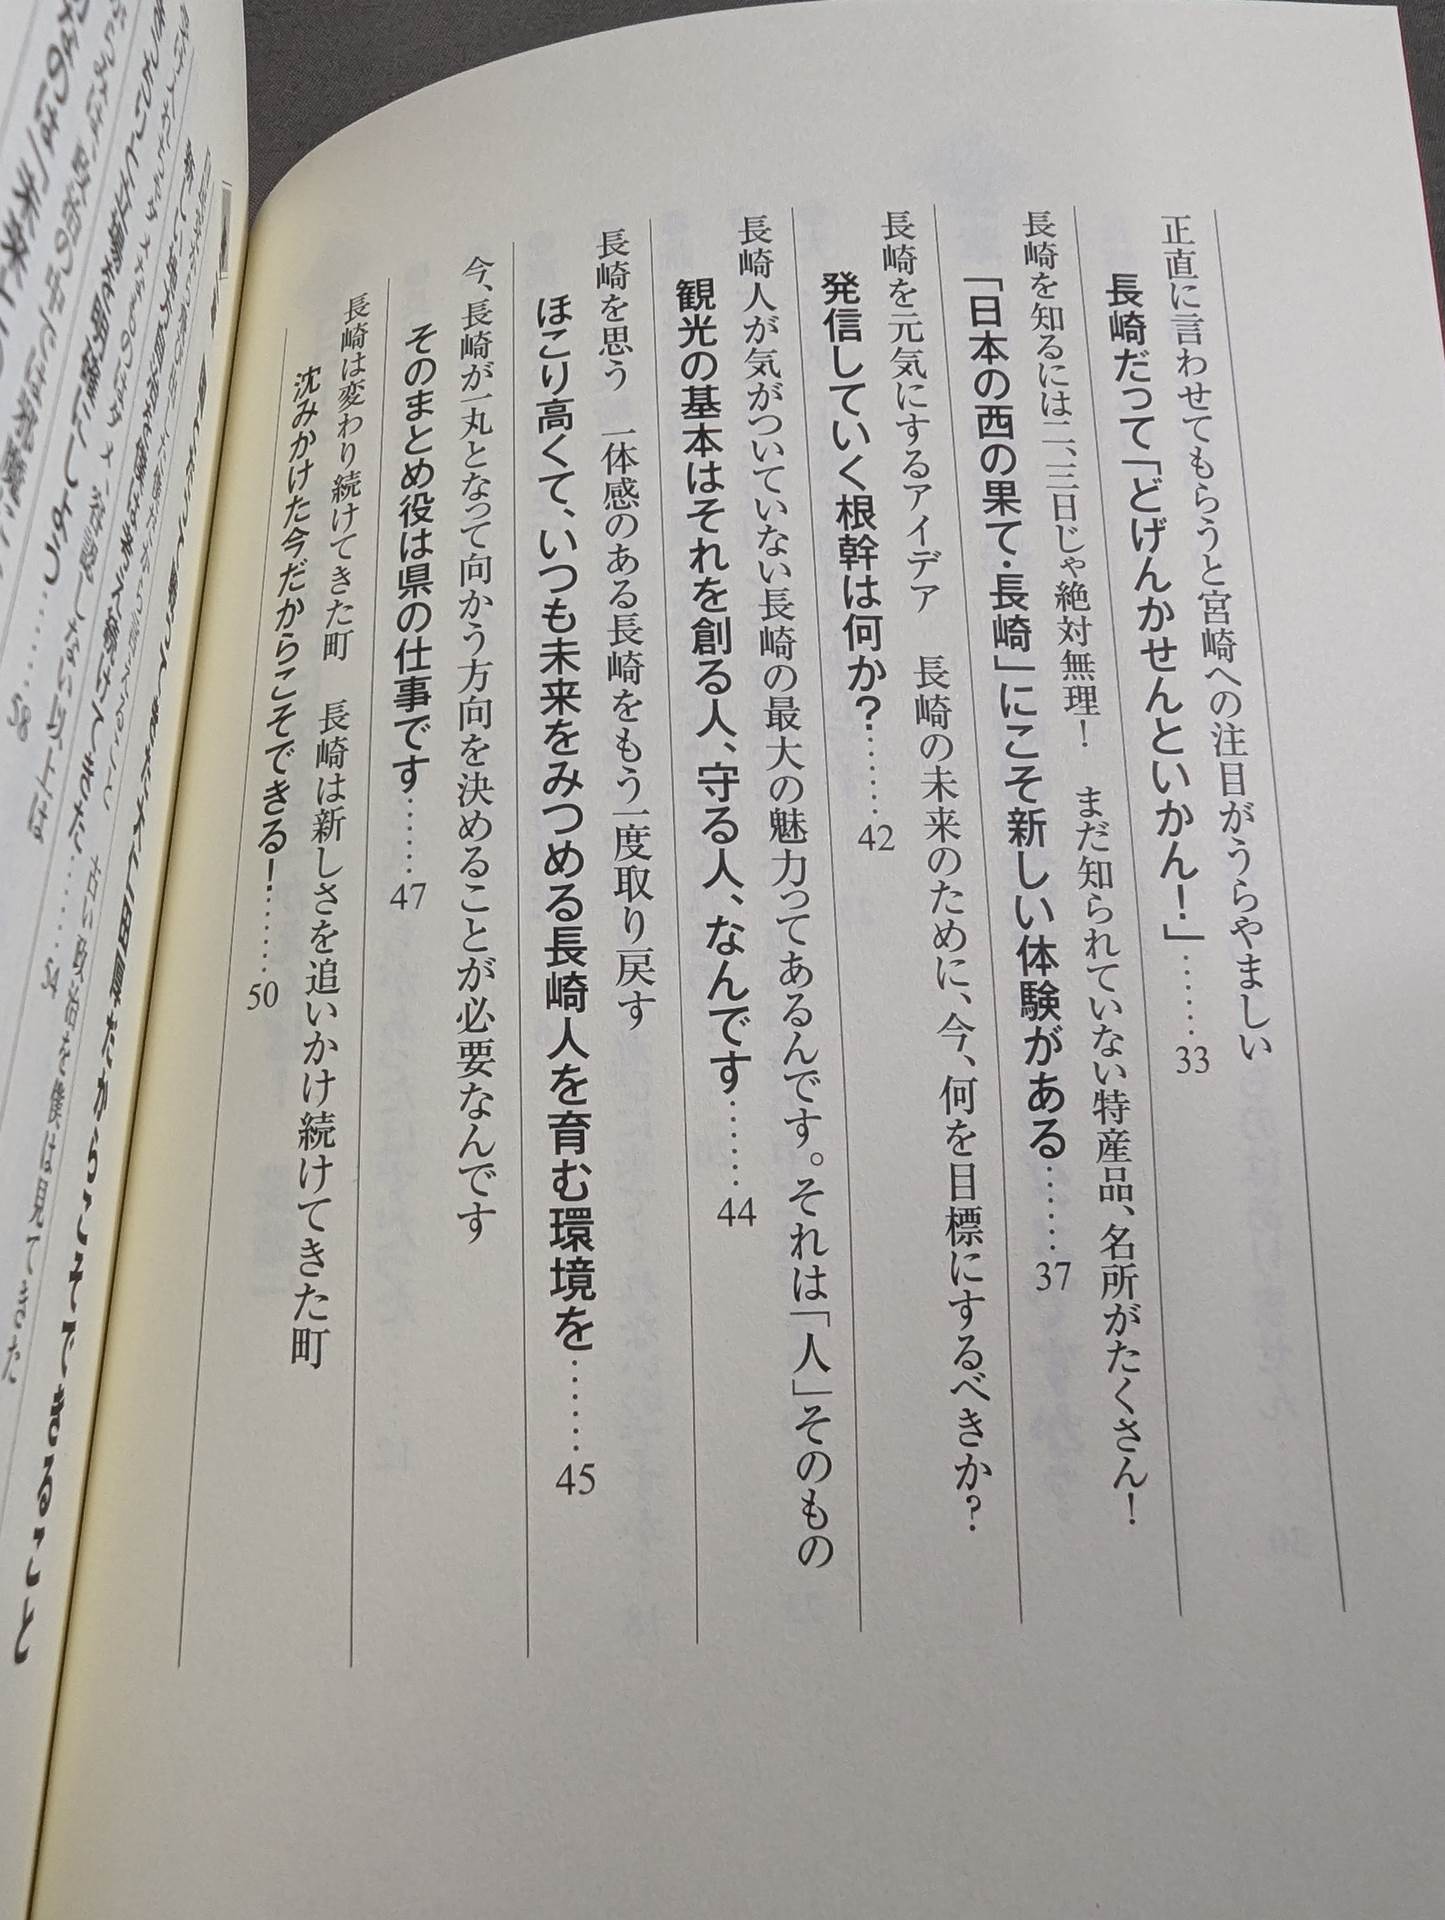 正直に言わせてもらうと宮崎への注目がうらやましい
長崎だって「どげんかせんといかん！」……33
長崎を知るには二、三日じゃ絶対無理！　まだ知られていない特産品、名所がたくさん！
「日本の西の果て・長崎」にこそ新しい体験がある……37
長崎を元気にするアイデア　長崎の未来のために、今、何を目標にするべきか？
発信していく根幹は何か？……42
長崎人が気がついていない長崎の最大の魅力ってあるんです。それは「人」そのもの
観光の基本はそれを創る人、守る人、なんです……44
長崎を思う　一体感のある長崎をもう一度取り戻す
ほこり高くて、いつも未来をみつめる長崎人を育む環境を……45
今、長崎が一丸となって向かう方向を決めることが必要なんです
そのまとめ役は県の仕事です……47
長崎は変わり続けてきた町　長崎は新しさを追いかけ続けてきた町
沈みかけた今だからこそできる！……50
だからこそできること
古い政治を僕は見てきた
新しい地方自治を僕は考え続けてきた……54
立場を明確にしよう……58